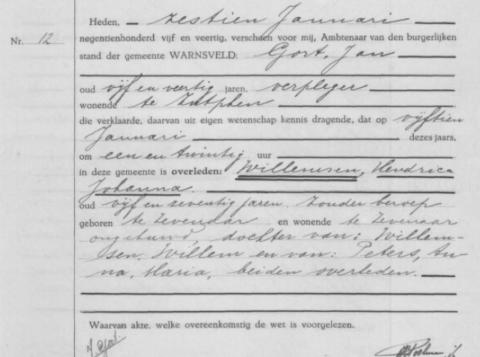 Heden, zestien Januari
Nr. 12
negentienhonderd vijf en veertig, verscheen voor mij, Ambtenaar van den burgerlijken
stand der gemeente WARNSVELD: Gort, Jan
oud vijf en veertig jaren, verpleger
wonende te Zutphen
die verklaarde, daarvan uit eigen wetenschap kennis dragende, dat op vijftien
Januari dezes jaars,
om een en twintig uur
in deze gemeente is overleden: Willemsen, Hendrica
Johanna.
oud vijf en zeventig jaren, zonder beroep
geboren te Zevenaar en wonende te Zevenaar
ongehuwd, dochter van: Willem-
sen, Willem en van: Peters, An-
na, Maria, beiden overleden.
Waarvan akte, welke overeenkomstig de wet is voorgelezen.
J Gort